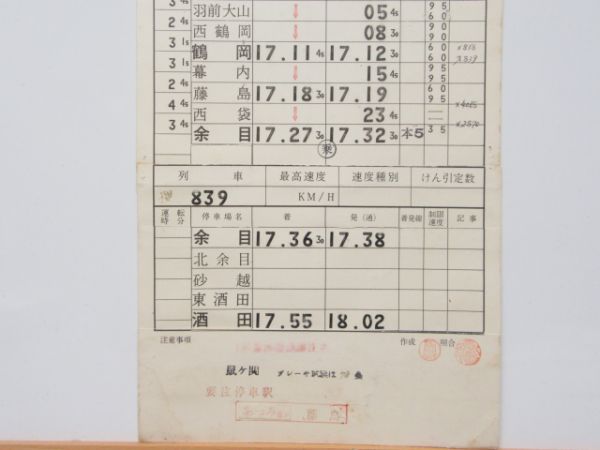 3 4s 羽前大山 ↓ 05 4s 95
2 4s 西鶴岡 ↓ 08 3o 90 60
3 1s 鶴岡 17.11 4s 17.12 3o 60
3 1s 幕内 ↓ 15 4s 95 90
2 4s 藤島 17.18 3o 17.19 60 95
4 4s 西袋 ↓ 23 4s
3 4s 余目 17.27 3o 17.32 3o 本5 35
乗
列車 最高速度 速度種別 けん引定数
839 KM/H
運転時分 停車場名 着 発(通) 着発線 制限速度 記事
余目 17.36 3o 17.38
北余目
砂越
東酒田
酒田 17.55 18.02
注意事項 作成 照合
鼠ケ関
要注停車駅